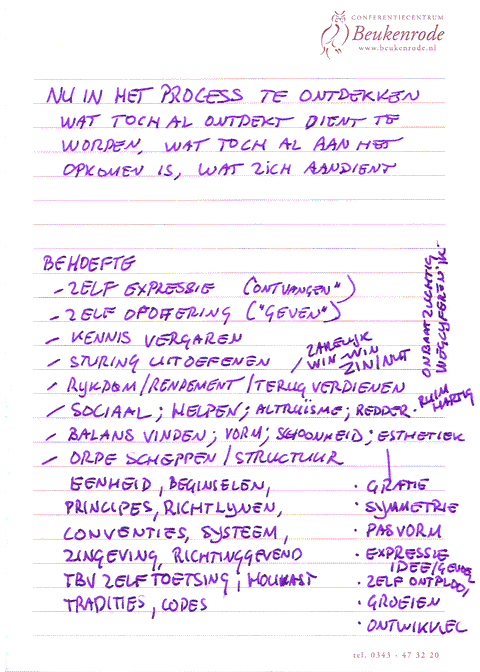 CONFERENTIECENTRUM
Beukenrode
www.beukenrode.nl
NU IN HET PROCESS TE ONTDEKKEN
WAT TOCH AL ONTDEKT DIENT TE
WORDEN, WAT TOCH AL AAN HET
OPKOMEN IS, WAT ZICH AANDIENT
BEHOEFTE
- ZELF EXPRESSIE (ONTVANGEN")
- ZELF OPOFFERING ("GEVEN")
ONBAATZUCHTIG
WEGCYFEREN "IK"
- KENNIS VERGAREN
- STURING UITOEFENEN / ZAKELIJK
WIN-WIN
ZIN/NUT
- RYKDOM/RENDEMENT/TERUG VERDIENEN
- SOCIAAL; HELPEN; ALTRUÏSME; REDDER. RUIM
HARTIG
- BALANS VINDEN; VORM; SCHOONHEID; ESTHETIEK
- ORDE SCHEPPEN / STRUCTUUR
EENHEID, BEGINSELEN,
PRINCIPES, RICHTLYNEN,
CONVENTIES, SYSTEEM,
ZINGEVING, RICHTINGGEVEND
TBV ZELF TOETSING; HOUVAST
TRADITIES, CODES
· GRATIE
· SYMMETRIE
· PASVORM
· EXPRESSIE
IDEE/
· ZELF ONTPLOO,
· GROEIEN
· ONTWIKKEL
tel. 0343 - 47 32 20